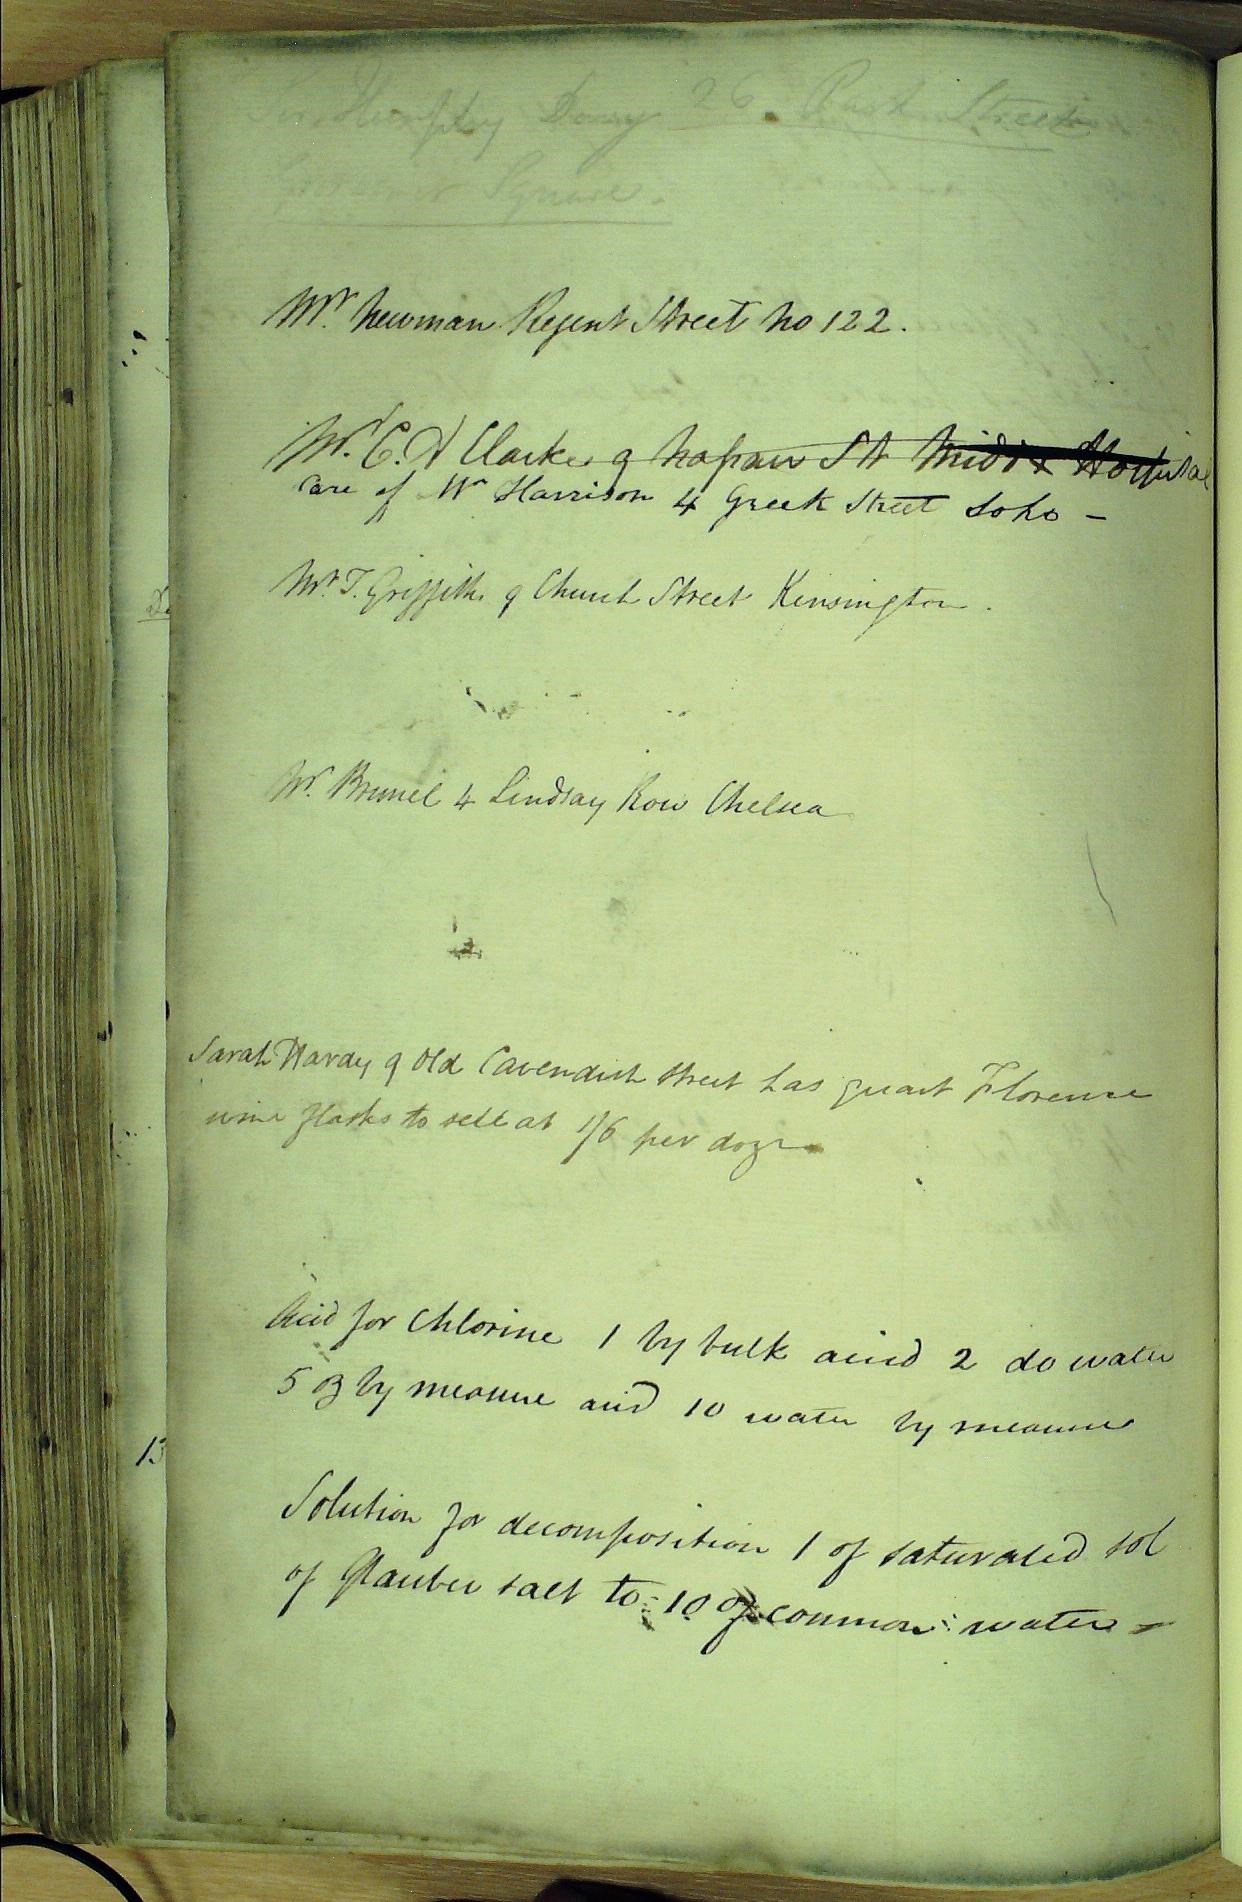 Sir Humphry Davy 26. Park Street
Grosvenor Square.
Mr. Newman Regent Street No 122.
Mr. C. A Clarke 9 Nassau St Middx Hospital
Care of Mr Harrison 4 Greek Street Soho -
Mr. T. Griffiths 9 Church Street Kensington.
Mr. Brunel 4 Lindsay Row Chelsea
Sarah Hardy 9 Old Cavendish Street has quart Florence
wine flasks to sell at 1/6 per dozn
Acid for Chlorine 1 by bulk acid 2 do water
5 oz by measure acid 10 water by measure
Solution for decomposition 1 of saturated sol
of Glauber salt to 10 of common water -
13